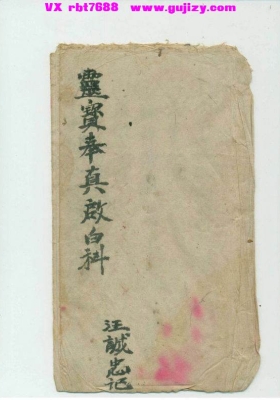 VX rbt7688 www.gujizy.com
靈寳奉真啟白科
汪誠忠記